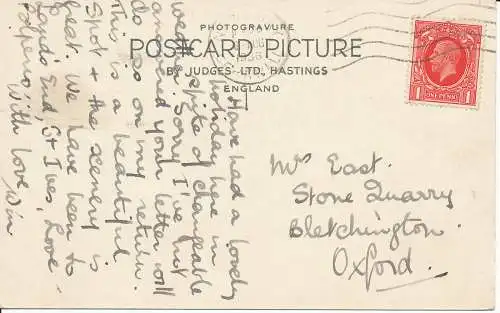 PHOTOGRAVURE
POSTCARD PICTURE
BY JUDGES' LTD, HASTINGS
ENGLAND
1 ONE PENNY 1
Have had a lovely
holiday here in
spite of changeable
weather. Sorry I've not
answered your letter will
do so on my return.
This is a beautiful
spot & the scenery is
great. We have been to
Lands End, St Ives, Looe
With love
Mrs East.
Stone Quarry
Bletchington
Oxford.